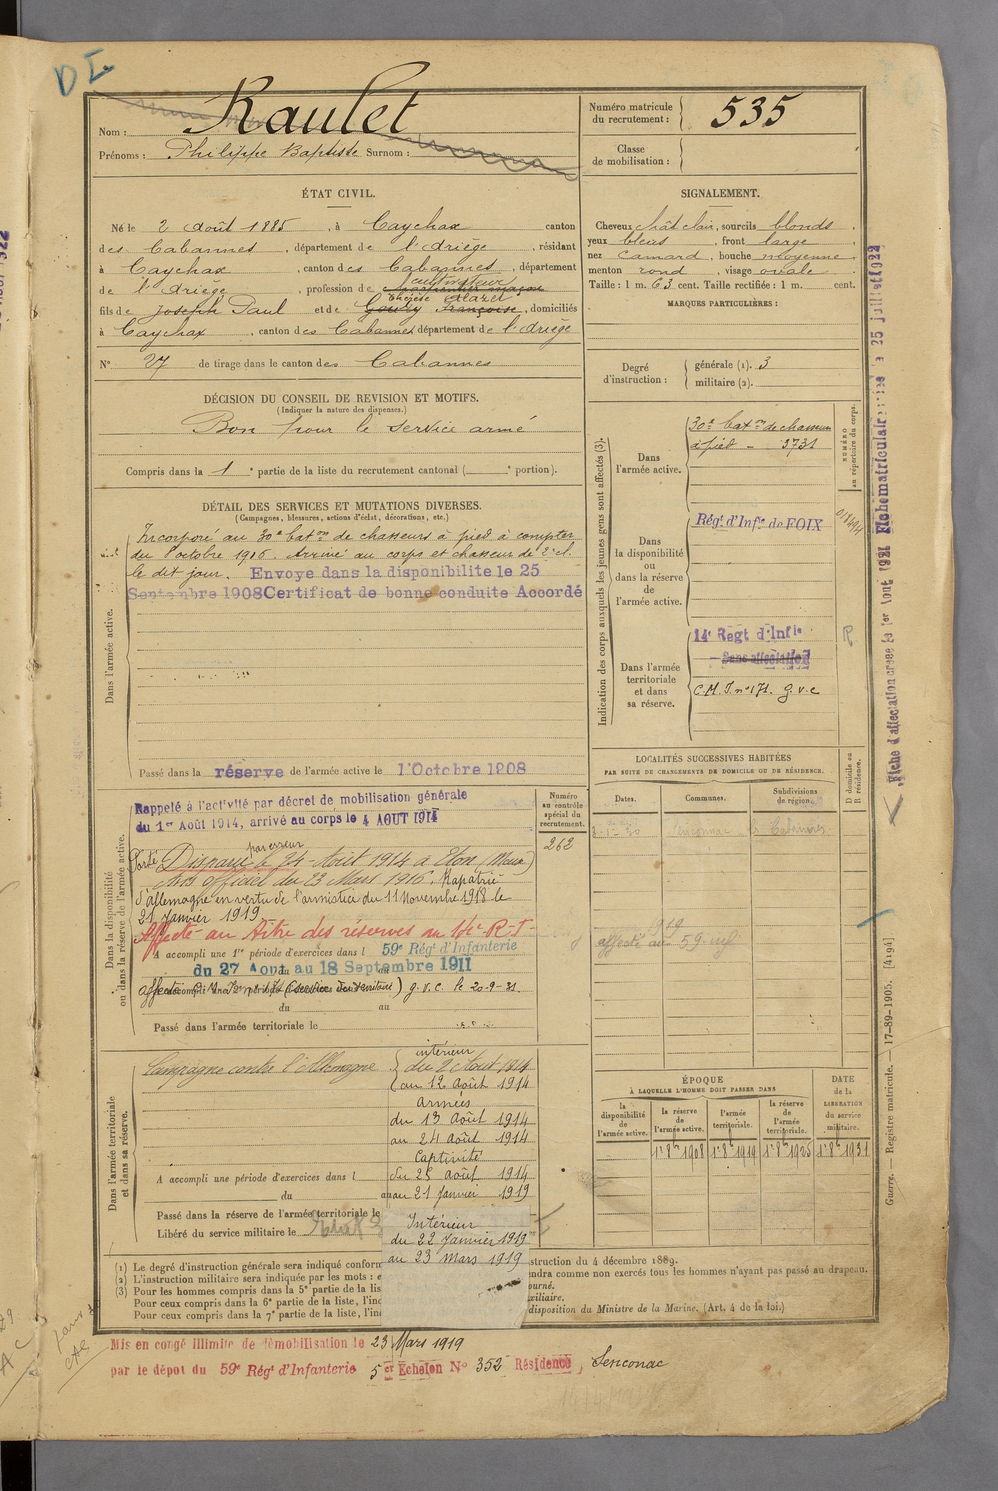 DI
Nom : Raulet
Prénoms : Philippe Baptiste Surnom :
Numéro matricule du recrutement : 535
Classe de mobilisation :
ÉTAT CIVIL.
Né le 2 août 1885, à Caychax canton
des Cabannes, département de l'Ariège, résidant
à Caychax, canton des Cabannes, département
cultivateur
de l'Ariège, profession de
Thérèse Alazet
fils de Joseph Paul et de Goury Françoise, domiciliés
à Caychax, canton des Cabannes département de l'Ariège
N° 27 de tirage dans le canton des Cabannes
SIGNALEMENT.
Cheveux chât clair, sourcils blonds,
yeux bleus, front large,
nez camard, bouche moyenne,
menton rond, visage ovale
Taille : 1 m. 63 cent. Taille rectifiée : 1 m. cent.
MARQUES PARTICULIÈRES :
Degré d'instruction : générale (1). 3
militaire (2).
DÉCISION DU CONSEIL DE REVISION ET MOTIFS.
(Indiquer la nature des dispenses.)
Bon pour le service armé
Compris dans la 1e partie de la liste du recrutement cantonal ( e portion).
DÉTAIL DES SERVICES ET MUTATIONS DIVERSES.
(Campagnes, blessures, actions d'éclat, décorations, etc.)
Dans l'armée active.
Incorporé au 30e baton de chasseurs à pied à compter
du 8 octobre 1906. Arrivé au corps et chasseur de 2e cl.
le dit jour. Envoye dans la disponibilite le 25
Septembre 1908 Certificat de bonne conduite Accordé
Passé dans la réserve de l'armée active le 1 Octobre 1908
Indication des corps auxquels les jeunes gens sont affectés (3).
NUMÉRO au répertoire du corps.
Dans l'armée active.
30e bat on de chasseurs
à pied - 3731
Dans la disponibilité ou dans la réserve de l'armée active.
Régt d'Infie de FOIX
Dans l'armée territoriale et dans sa réserve.
14e Regt d'Infie
Sans affectation
C.M.I. n° 171. g.v.c
R
Fiche d'affectation créée le 1er Aout 1921 Fiche matriculaire le 25 juillet 1922
LOCALITÉS SUCCESSIVES HABITÉES
PAR SUITE DE CHANGEMENTS DE DOMICILE OU DE RÉSIDENCE.
Dates.
Communes.
Subdivisions de région.
D domicile ou R résidence.
Senconac
Cabannes
1919
affecté au 59 inf
Dans la disponibilité ou dans la réserve de l'armée active.
Numéro au contrôle spécial du recrutement.
262
Rappelé à l'activité par décret de mobilisation générale
du 1er Août 1914, arrivé au corps le 4 AOUT 1914
par erreur
Porté Disparu le 24 Août 1914 à Eton (Meuse)
Avis officiel du 23 Mars 1916. Rapatrié
d'Allemagne en vertu de l'armistice du 11 Novembre 1918 le
21 Janvier 1919
Affecté au titre des réserves au 14e R-I-
A accompli une 1re période d'exercices dans l 59e Régt d'Infanterie
du 27 Aout au 18 Septembre 1911
g.v.c. le 20-9-31.
du au
Passé dans l'armée territoriale le
Dans l'armée territoriale et dans sa réserve.
Campagne contre l'Allemagne
intérieur
du 2 Août 1914
au 12 Août 1914
Armées
du 13 Août 1914
au 24 Août 1914
Captivité
A accompli une période d'exercices dans l
du 25 Août 1914
du au
au 21 Janvier 1919
Passé dans la réserve de l'armée territoriale le
Libéré du service militaire le
Intérieur
du 22 Janvier 1919
au 23 Mars 1919
ÉPOQUE
À LAQUELLE L'HOMME DOIT PASSER DANS
la disponibilité de l'armée active.
la réserve de l'armée active.
l'armée territoriale.
la réserve de l'armée territoriale.
DATE de la LIBÉRATION du service militaire.
1er 8bre 1908
1er 8bre 1919
1er 8bre 1925
1er 8bre 1931
Guerre. — Registre matricule. — 17-89-1905. [4194]
(1) Le degré d'instruction générale sera indiqué conform
struction du 4 décembre 1889.
(2) L'instruction militaire sera indiquée par les mots : e
endra comme non exercés tous les hommes n'ayant pas passé au drapeau.
(3) Pour les hommes compris dans la 5e partie de la lis
ourné.
Pour ceux compris dans la 6e partie de la liste, l'ind
xiliaire.
Pour ceux compris dans la 7e partie de la liste, l'ind
disposition du Ministre de la Marine. (Art. 4 de la loi.)
Mis en congé illimité de démobilisation le 23 Mars 1919
par le dépot du 59e Régt d'Infanterie 5er Echelon N° 352 Résidence, Senconac